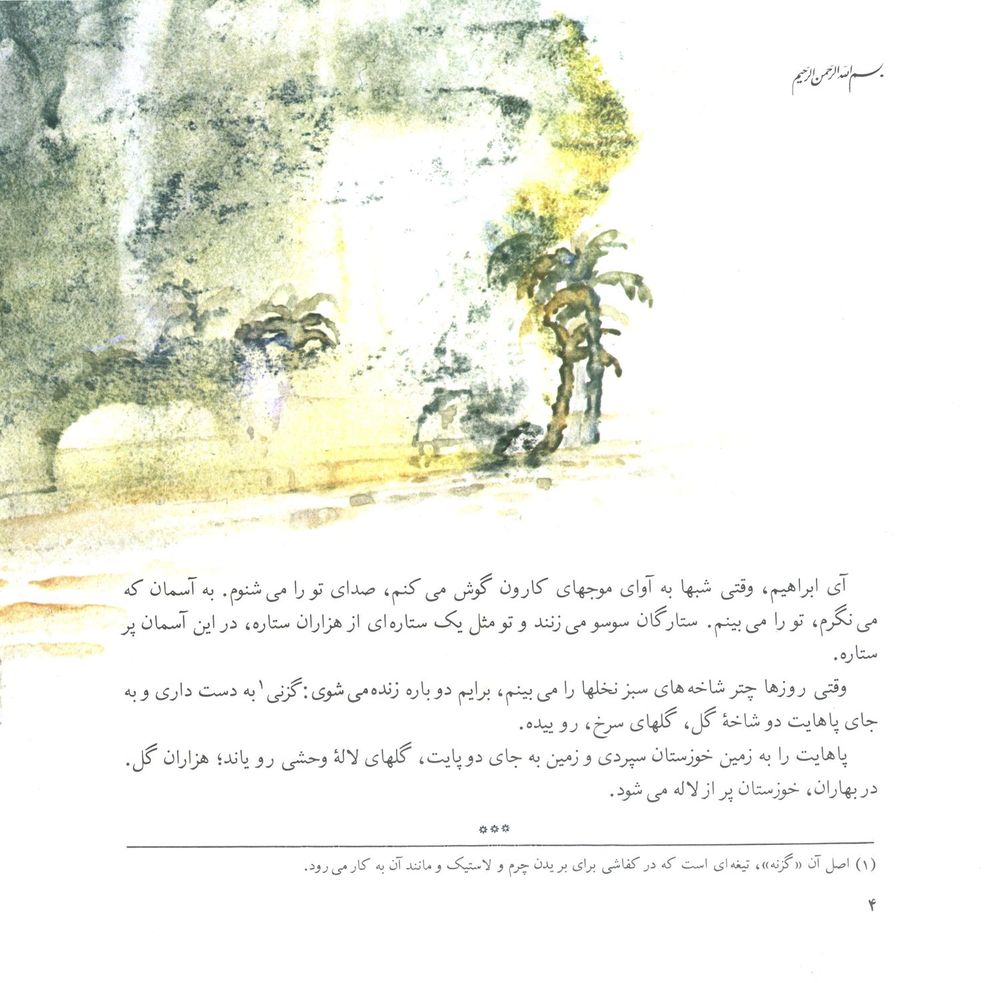 بسم الله الرحمن الرحیم
آی ابراهیم، وقتی شبها به آوای موجهای کارون گوش می کنم، صدای تو را می شنوم. به آسمان که
می نگرم، تو را می بینم. ستارگان سوسو می زنند و تو مثل یک ستاره ای از هزاران ستاره، در این آسمان پر
ستاره.
وقتی روزها چتر شاخه های سبز نخلها را می بینم، برایم دوباره زنده می شوی: گزنی۱ به دست داری و به
جای پاهایت دو شاخهٔ گل، گلهای سرخ، روییده.
پاهایت را به زمین خوزستان سپردی و زمین به جای دو پایت، گلهای لالهٔ وحشی رویاند؛ هزاران گل.
در بهاران، خوزستان پر از لاله می شود.
***
(۱) اصل آن «گزنه»، تیغه ای است که در کفاشی برای بریدن چرم و لاستیک و مانند آن به کار می رود.
۴